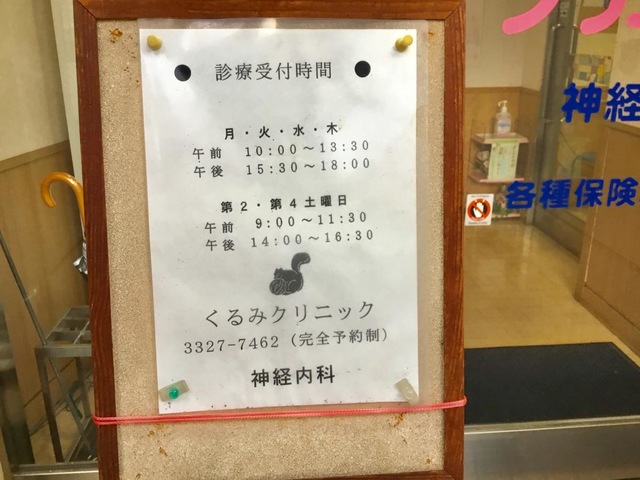 ● 診療受付時間 ●
月・火・水・木
午前 10:00～13:30
午後 15:30～18:00
第2・第4土曜日
午前 9:00～11:30
午後 14:00～16:30
くるみクリニック
3327-7462（完全予約制）
神経内科
神経
各種保険